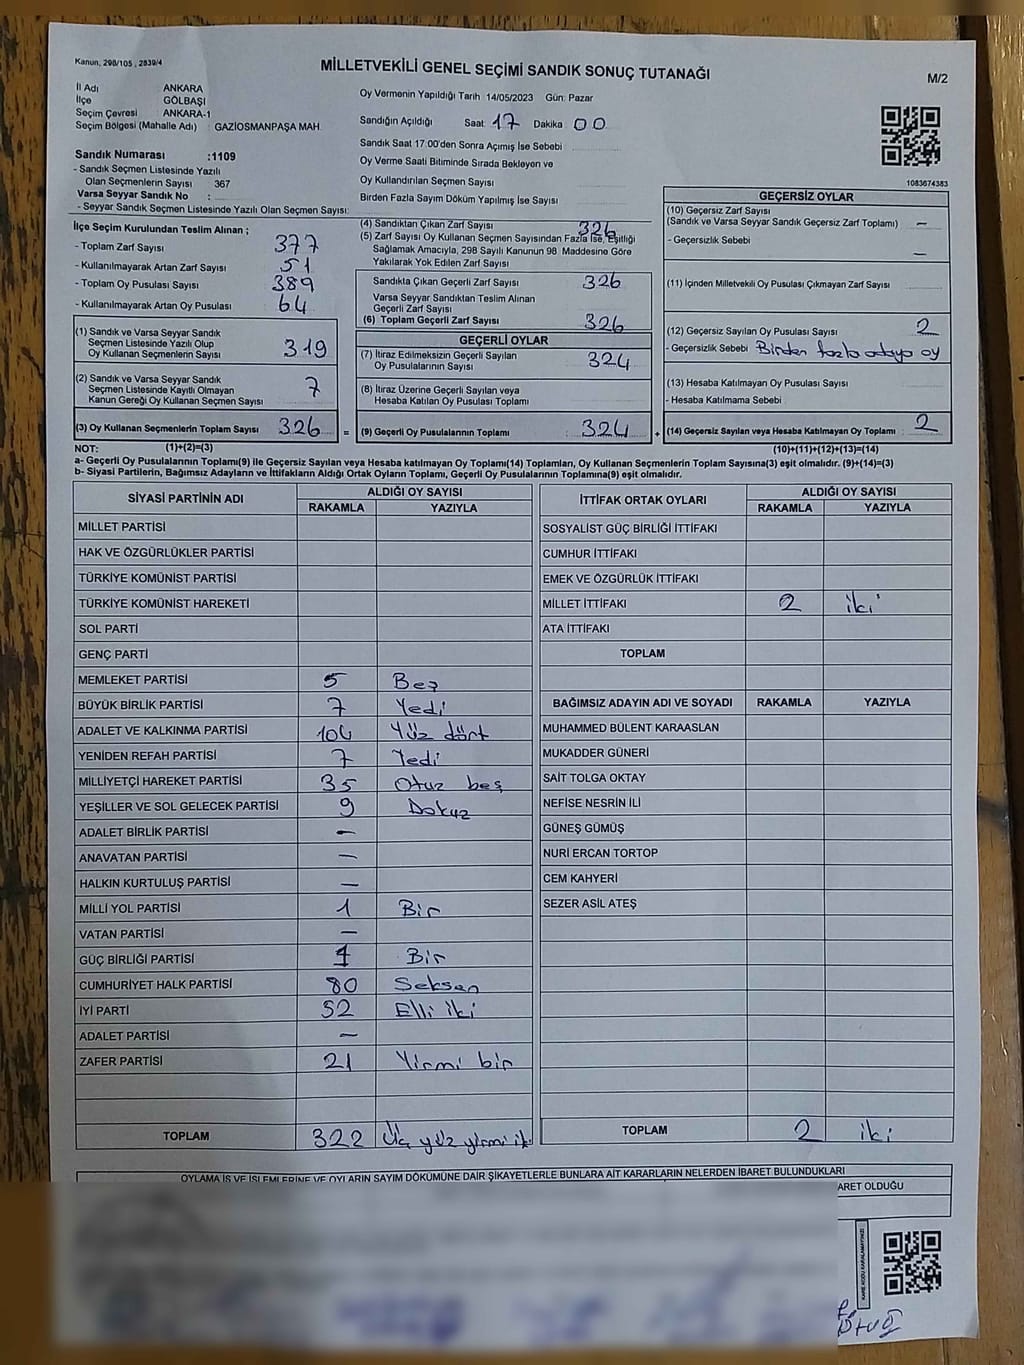 Kanun, 298/105 , 2839/4
MİLLETVEKİLİ GENEL SEÇİMİ SANDIK SONUÇ TUTANAĞI
M/2
İl Adı ANKARA
İlçe GÖLBAŞI
Seçim Çevresi ANKARA-1
Seçim Bölgesi (Mahalle Adı) : GAZİOSMANPAŞA MAH.
Sandık Numarası :1109
- Sandık Seçmen Listesinde Yazılı
Olan Seçmenlerin Sayısı 367
Varsa Seyyar Sandık No :
- Seyyar Sandık Seçmen Listesinde Yazılı Olan Seçmen Sayısı:
Oy Vermenin Yapıldığı Tarih 14/05/2023 Gün: Pazar
Sandığın Açıldığı Saat 17 Dakika 00
Sandık Saat 17.00'den Sonra Açımış İse Sebebi
Oy Verme Saati Bitiminde Sırada Bekleyen ve
Oy Kullandırılan Seçmen Sayısı
Birden Fazla Sayım Döküm Yapılmış İse Sayısı
1083674383
İlçe Seçim Kurulundan Teslim Alınan ;
- Toplam Zarf Sayısı 377
- Kullanılmayarak Artan Zarf Sayısı 51
- Toplam Oy Pusulası Sayısı 389
- Kullanılmayarak Artan Oy Pusulası 64
(1) Sandık ve Varsa Seyyar Sandık
Seçmen Listesinde Yazılı Olup
Oy Kullanan Seçmenlerin Sayısı 319
(2) Sandık ve Varsa Seyyar Sandık
Seçmen Listesinde Kayıtlı Olmayan
Kanun Gereği Oy Kullanan Seçmen Sayısı 7
(3) Oy Kullanan Seçmenlerin Toplam Sayısı 326 =
(4) Sandıktan Çıkan Zarf Sayısı 326
(5) Zarf Sayısı Oy Kullanan Seçmen Sayısından Fazla İse, Eşitliği
Sağlamak Amacıyla, 298 Sayılı Kanunun 98. Maddesine Göre
Yakılarak Yok Edilen Zarf Sayısı
Sandıkta Çıkan Geçerli Zarf Sayısı 326
Varsa Seyyar Sandıktan Teslim Alınan
Geçerli Zarf Sayısı
(6) Toplam Geçerli Zarf Sayısı 326
GEÇERLİ OYLAR
(7) İtiraz Edilmeksizin Geçerli Sayılan
Oy Pusulalarının Sayısı 324
(8) İtiraz Üzerine Geçerli Sayılan veya
Hesaba Katılan Oy Pusulası Toplamı
(9) Geçerli Oy Pusulalarının Toplamı 324 +
GEÇERSİZ OYLAR
(10) Geçersiz Zarf Sayısı
(Sandık ve Varsa Seyyar Sandık Geçersiz Zarf Toplamı) -
- Geçersizlik Sebebi -
(11) İçinden Milletvekili Oy Pusulası Çıkmayan Zarf Sayısı
(12) Geçersiz Sayılan Oy Pusulası Sayısı 2
- Geçersizlik Sebebi Birden fazla adaya oy
(13) Hesaba Katılmayan Oy Pusulası Sayısı
- Hesaba Katılmama Sebebi
(14) Geçersiz Sayılan veya Hesaba Katılmayan Oy Toplamı 2
NOT: (1)+(2)=(3) (10)+(11)+(12)+(13)=(14)
a- Geçerli Oy Pusulalarının Toplamı(9) ile Geçersiz Sayılan veya Hesaba katılmayan Oy Toplamı(14) Toplamları, Oy Kullanan Seçmenlerin Toplam Sayısına(3) eşit olmalıdır. (9)+(14)=(3)
b- Siyasi Partilerin, Bağımsız Adayların ve İttifakların Aldığı Ortak Oyların Toplamı, Geçerli Oy Pusulalarının Toplamına(9) eşit olmalıdır.
SİYASİ PARTİNİN ADI ALDIĞI OY SAYISI
RAKAMLA YAZIYLA
MİLLET PARTİSİ
HAK VE ÖZGÜRLÜKLER PARTİSİ
TÜRKİYE KOMÜNİST PARTİSİ
TÜRKİYE KOMÜNİST HAREKETİ
SOL PARTİ
GENÇ PARTİ
MEMLEKET PARTİSİ 5 Beş
BÜYÜK BİRLİK PARTİSİ 7 Yedi
ADALET VE KALKINMA PARTİSİ 104 Yüz dört
YENİDEN REFAH PARTİSİ 7 Yedi
MİLLİYETÇİ HAREKET PARTİSİ 35 Otuz beş
YEŞİLLER VE SOL GELECEK PARTİSİ 9 Dokuz
ADALET BİRLİK PARTİSİ -
ANAVATAN PARTİSİ -
HALKIN KURTULUŞ PARTİSİ -
MİLLİ YOL PARTİSİ 1 Bir
VATAN PARTİSİ -
GÜÇ BİRLİĞİ PARTİSİ 1 Bir
CUMHURİYET HALK PARTİSİ 80 Seksen
İYİ PARTİ 52 Elli iki
ADALET PARTİSİ -
ZAFER PARTİSİ 21 Yirmi bir
TOPLAM 322 Üç yüz yirmi ik
İTTİFAK ORTAK OYLARI ALDIĞI OY SAYISI
RAKAMLA YAZIYLA
SOSYALİST GÜÇ BİRLİĞİ İTTİFAKI
CUMHUR İTTİFAKI
EMEK VE ÖZGÜRLÜK İTTİFAKI
MİLLET İTTİFAKI 2 iki
ATA İTTİFAKI
TOPLAM
BAĞIMSIZ ADAYIN ADI VE SOYADI RAKAMLA YAZIYLA
MUHAMMED BÜLENT KARAASLAN
MUKADDER GÜNERİ
SAİT TOLGA OKTAY
NEFİSE NESRİN İLİ
GÜNEŞ GÜMÜŞ
NURİ ERCAN TORTOP
CEM KAHYERİ
SEZER ASİL ATEŞ
TOPLAM 2 iki
OYLAMA İŞ VE İŞLEMLERİNE VE OYLARIN SAYIM DÖKÜMÜNE DAİR ŞİKAYETLERLE BUNLARA AİT KARARLARIN NELERDEN İBARET BULUNDUKLARI
ARET OLDUĞU